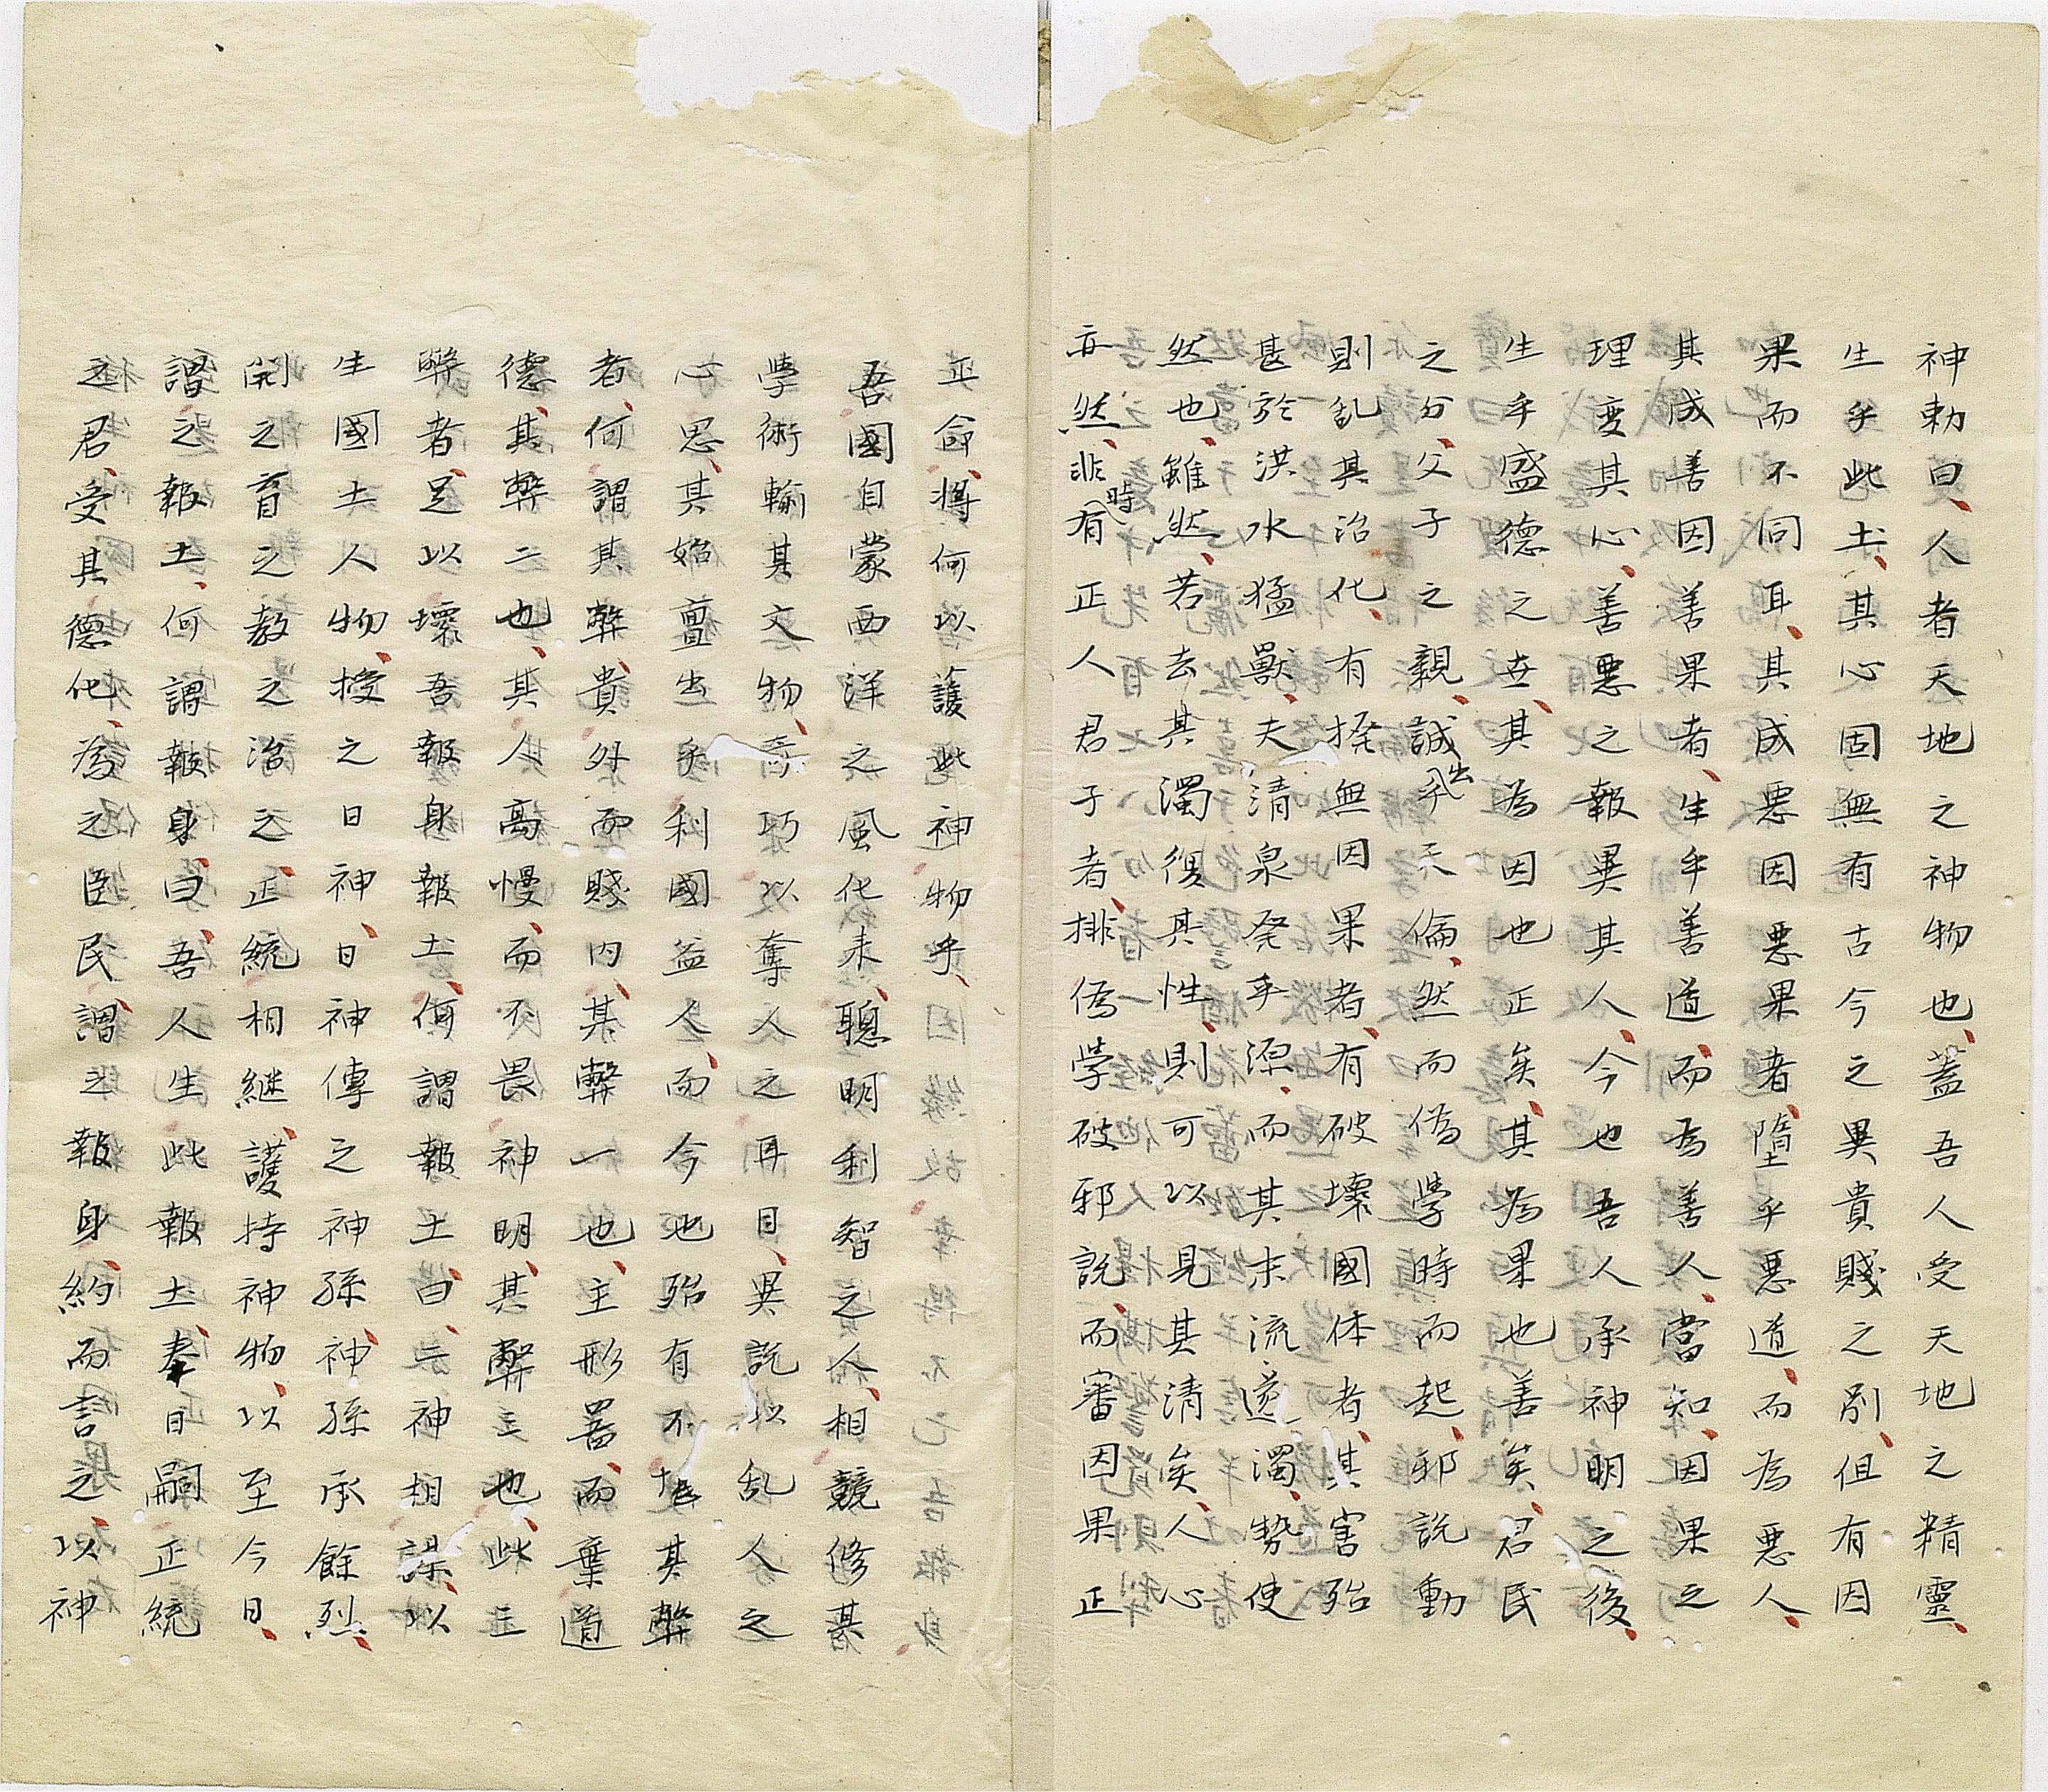 神勅曰、人者天地之神物也、蓋吾人受天地之精靈、
生乎此土、其心固無有古今之異貴賤之別、但有因
果而不同耳、其成惡因惡果者、墮乎惡道、而為惡人、
其成善因善果者、生乎善道、而為善人、當知、因果之
理变其心、善惡之報異其人、今也吾人承神明之後、
生乎盛德之世、其為因也正矣、其為果也善矣、君民
之分、父子之親、誠出乎天倫、然而偽学時而起、邪説動
則乱其治化、有撥無因果者、有破壞國体者、其害殆
甚於洪水猛獸、夫清泉発乎源、而其末流遂濁、勢使
然也、雖然、若去其濁復其性、則可以見其清矣、人心
亦然、非時有正人君子者、排偽学破邪説、而審因果正
正命、將何以護此神物乎、
吾國自蒙西洋之風化来、聰明利智之人、相競修其
學術輸其文物、奇巧以奪人之耳目、異説以乱人之
心思、其始亶出乎利國益人、而今也殆有不堪其弊
者、何謂其弊、貴外而賤内、其弊一也、主形器而棄道
德、其弊二也、其人高慢、而不畏神明、其弊三也、此三
弊者、足以壞吾報身報土、何謂報土、曰、二神相謀、以
生國土人物、授之日神、日神傳之神孫、神孫承餘烈、
開之育之教之治之、正統相継、護持神物、以至今日、
謂之報土、何謂報身、曰、吾人生此報土、奉日嗣正統
之君、受其德化、為之臣民、謂之報身、約而言之、以神